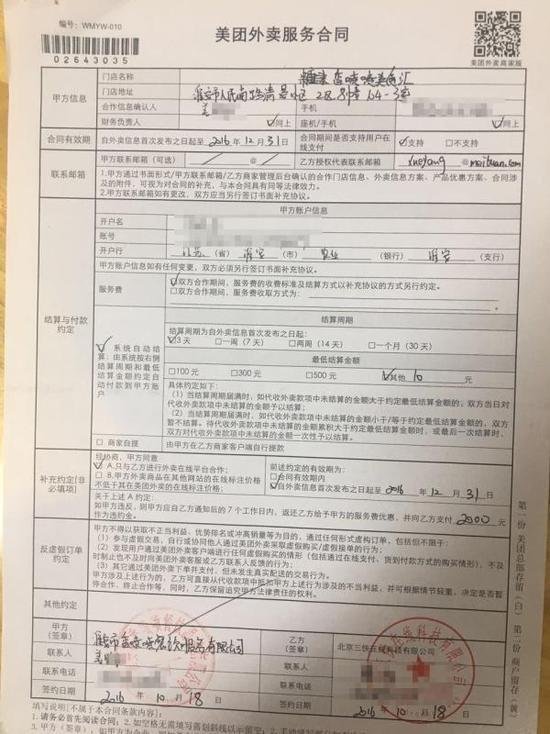 编号：WMYW-010
02643035
美团外卖服务合同
美团外卖商家版
甲方信息
门店名称
门店地址
淮安市人民南路清
合作信息确认人
手机
联系人
同上
座机/手机
同上
合同有效期
自外卖信息首次发布之日起至 2016 年 12 月 31 日
合同期间是否支持用户在线支付
支持 不支持
联系邮箱
甲方联系邮箱（可选）
@
乙方授权代表联系邮箱
@meituan.com
1.甲方通过书面形式/甲方联系邮箱/乙方商家管理后台确认的合作门店信息、外卖信息方案、产品优惠方案、合同涉及的附件，可视为对合同的补充，与本合同具有同等法律效力。
2.甲方联系邮箱如有更改，双方应当另行签订书面补充协议。
结算与付款约定
甲方账户信息
开户名
账号
开户行
江苏（省） 淮安（市） 农业（银行） 淮安（支行）
甲方账户信息如有任何变更，双方必须另行签订书面补充协议。
服务费
双方合作期间，服务费的收费标准及结算方式以补充协议的方式另行约定。
双方合作期间，服务费收取方式为：
系统自动结算：由系统按右侧结算周期和最低结算金额约定自动付款到甲方账户
结算周期
结算周期为自外卖信息首次发布之日起：
3天 一周（7天） 两周（14天） 一个月（30天）
最低结算金额
100元 300元 500元 其他 10 元
具体约定如下：
（1）当结算周期届满时，如代收外卖款项中未结算的金额大于约定最低结算金额的，双方当日对代收外卖款项中未结算的金额予以结算；
（2）当结算周期届满时，如代收外卖款项中未结算的金额小于/等于约定最低结算金额的，双方暂不结算。待代收外卖款项中未结算的金额累积大于约定最低结算金额时，或最后一次结算时，双方对代收外卖款项中未结算的金额一次性予以结算。
商家自提
由甲方在乙方商家客户端自行提款
补充约定(非必填项)
经协商，甲方同意
A.只与乙方进行外卖在线平台合作；
B.外卖物方商品在其他网站的在线标注价格不低于其在美团外卖的在线标注价格。
前述约定的有效期为：
合同有效期内
自外卖信息首次发布之日起至 2016 年 12 月 31 日
关于上述A约定：
如甲方违反，则甲方应自乙方通知之后的7个工作日内，返还乙方给予甲方的服务费优惠，并向乙方支付 2000 元作为违约金。
反虚假订单约定
甲方不得以获取不正当利益、优势排名或冲高销量等为目的，通过任何形式虚构订单，包括但不限于：
（1）参与虚拟交易，自行或协同他人通过美团外卖采取虚假购买/虚假接单的行为；
（2）发现用户通过美团外卖客户端进行任何虚假购买的情形（包括通过在线支付、货到付款方式的购买情形），不及时制止也不及时向美团外卖客服或乙方联系人反馈的行为；
（3）其它通过美团外卖下单并支付，但未发生真实配送的交易行为。
甲方涉及上述行为的，乙方可直接从代收款项中抵扣甲方上述行为涉及的不当利益，并可根据情节轻重，决定是否暂停合作、终止合作等，同时，乙方保留追究甲方法律责任的权利。
其他约定
甲方（签章）
乙方（签章）
北京三快在线科技有限公司
联系人
联系人
联系电话
联系电话
签约日期
2016 年 10 月 18 日
签约日期
2016 年 10 月 18 日
填写说明（不属于本合同条款内容）
1.请务必首先阅读合同；2.如空格无需填写需划斜线以示留空；
第一份 美团总部存留（白） 第二份 商户留存（黄）